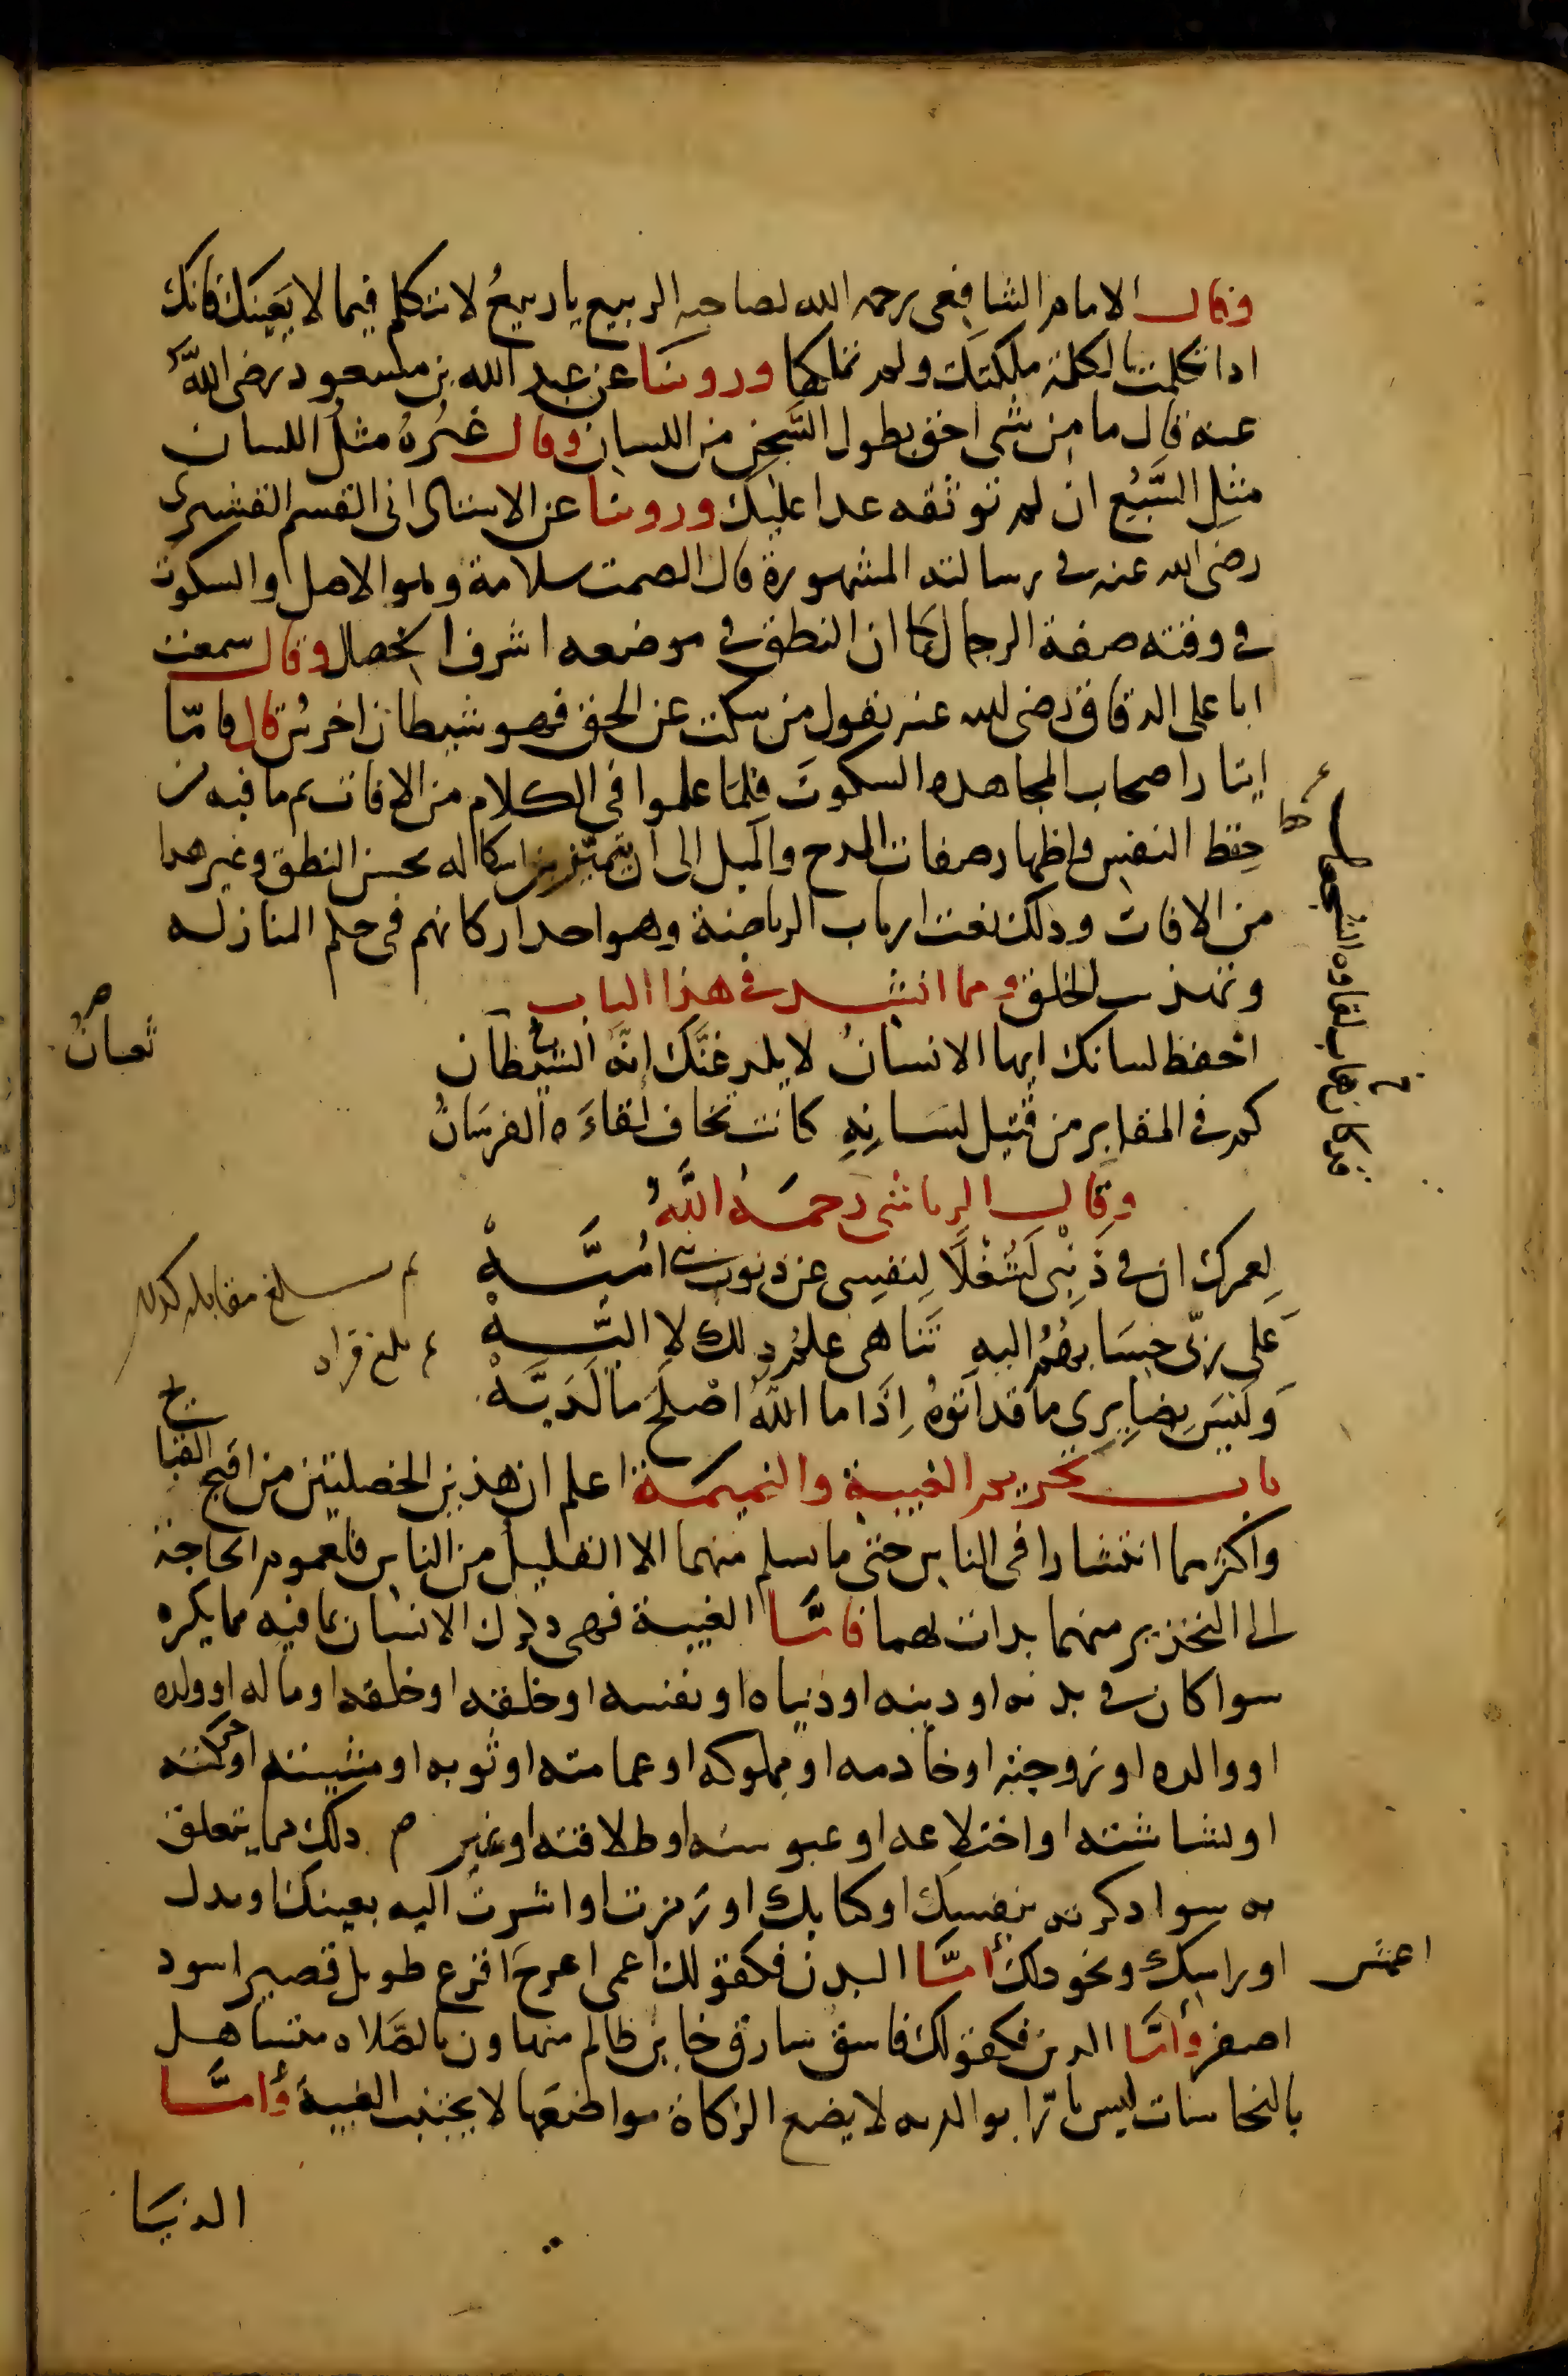 وقال الامام الشافعى رحمه الله لصاحبه الربيع يا ربيعُ لا تتكلم فيما لا يَعنيك فانك
اذا تكلمت بالكلمة ملكتك ولم تملكها وروينا عن عبد الله بن مسعود رضى اللهُ
عنه قال ما من شى احق بطول السَّجن من اللسان وقال غيرُهُ مثلُ اللسان
مثل السَّبُع ان لم توثقه عدا عليك وروينا عن الاستاذ ابى القسم القشيرى
رضى الله عنه فى رسالته المشهورة قال الصمت سلامة وهو الاصل والسكوت
فى وقته صفة الرجال كما ان النطق فى موضعه اشرف الخصال وقال سمعت
ابا على الدقاق رضى الله عنه يقول من سكت عن الحق فهو شيطان اخرس قال فامّا
ايثار اصحاب المجاهده السكوتَ فلمَا علموا فى الكلام من الافات ثم ما فيه من
حِظ النفس واظهار صفات المدح والميل الى ان يتميّز من اشكاله بحسن النطق وغير هذا
من الافات وذلك نعت ارباب الرياضة وهو احد اركانهم فى حكم المنازله
وتهذيب الخلق ومما انشد فى هذا الباب
احفظ لسانك ايها الانسانُ لا يلدغنَّك انَّه الشيطان
ثعبانُ
كم فى المقابر من قتيل لسَانِهِ كانت تخاف لقاءَه الفرسَانُ
قد كان هاب لقاءه الشجعان
وقال الرياشى رحمَهُ اللَّهُ
لعمرك ان فى ذَنبى لَشُغْلًا لِنفسى عن ذنوب بنى اميَّــهْ
على ربّى حِسَابهُمُ اليه تَنَاهى علمُ ذلك لا اليَّــهْ
وَليسَ بِضايرى ما قد اتَوهُ اِذَا ما اللهُ اصْلَحَ ما لَدَيَّــهْ
بلغ مقابله
بلغ قراه
باب تحريم الغيبة والنميمَة اعلم ان هذين الخصلتين من اقبح القبايح
واكثرهما انتشارا فى الناس حتى ما يسلم منهما الا القليل من الناس فلعموم الحاجة
الى التحذير منهما بدات بهما فامَّا الغيبة فهى ذكرك الانسان بما فيه مما يكره
سوا كان فى بدنه او دينه او دنياه او نفسه او خلقه او خلقه او ماله او ولده
او والده او زوجته او خادمه او مملوكه او عمامته او ثوبه او مشيته او حركته
او بشاشته او اختلاعه او عبوسته او طلاقته او غير ذلك مما يتعلق
به سوا ذكرته بنفسك او كتابك او رَمزت او اشرتَ اليه بعينك او يدك
او راسك ونحو ذلك أمَّا البدن فكقولك اعمى اعرج اقرع طويل قصير اسود
اعمش
اصفر وأمَّا الدين فكقولك فاسق سارق خاين ظالم متهاون بالصَّلاه متساهل
بالنجاسات ليس بارّا بوالديه لا يضع الزكاة مواضعَها لا يجتنب الغيبة وأمَّا
الدنيَا